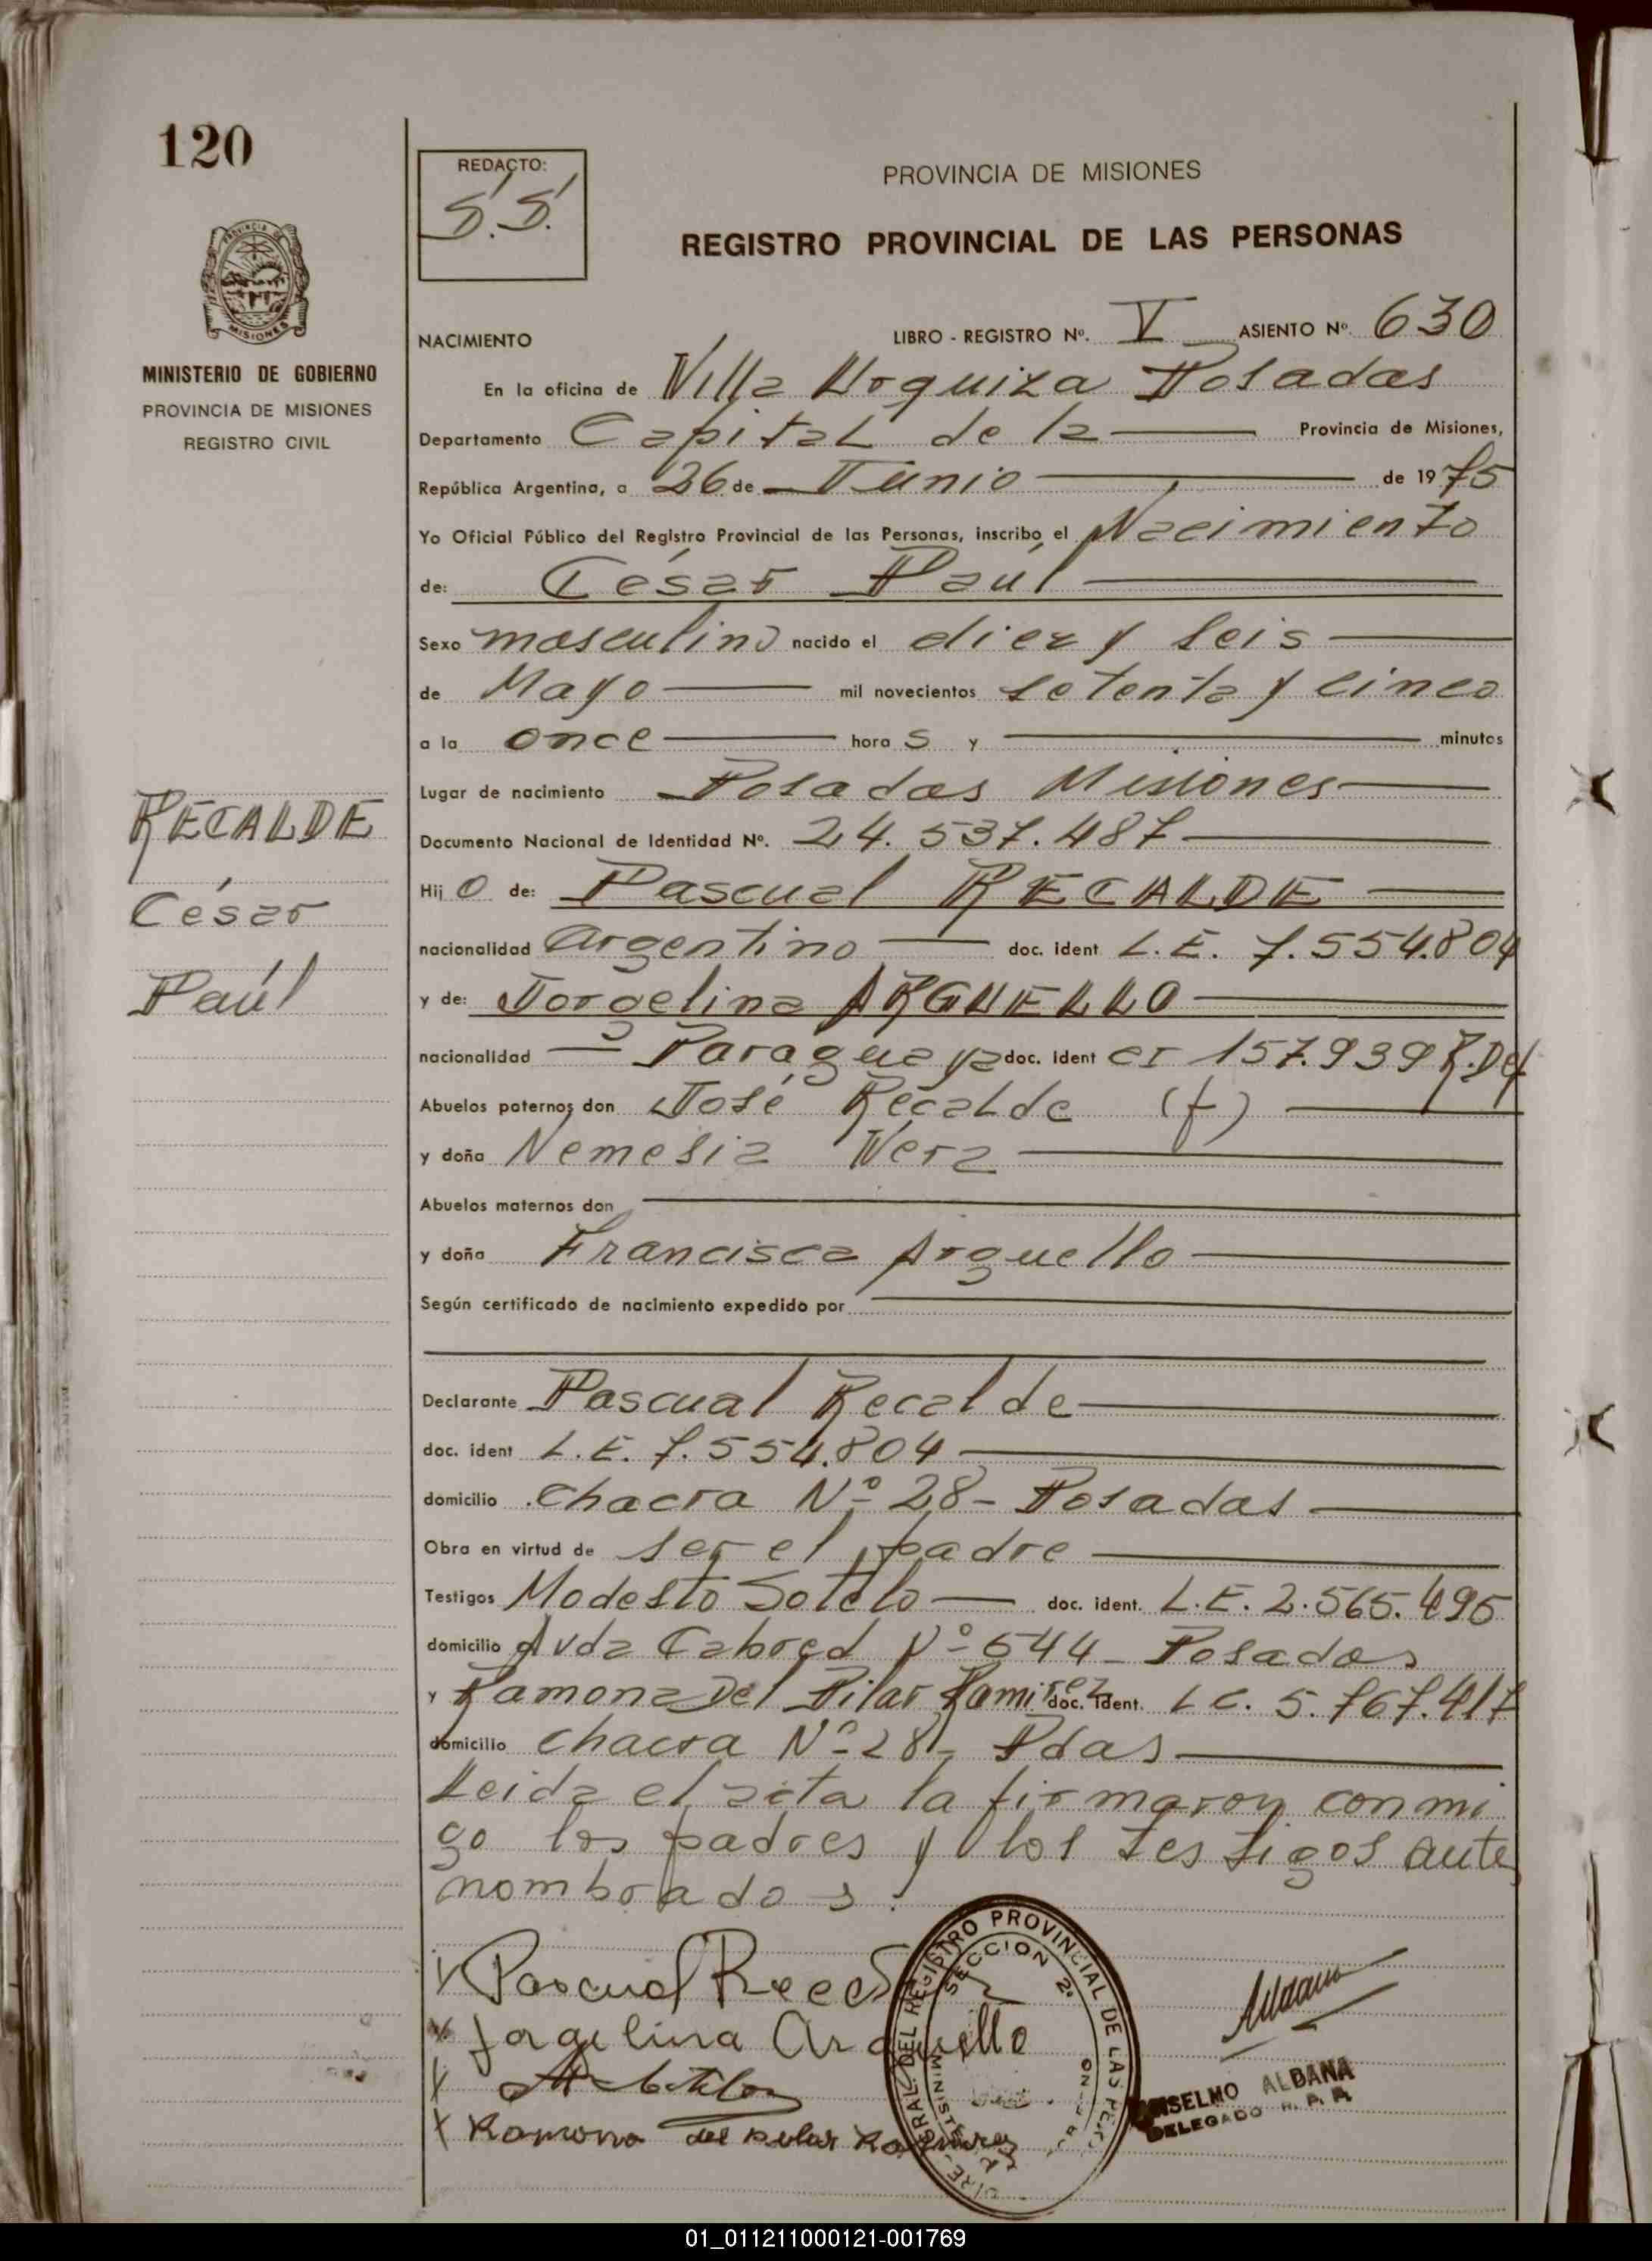 120
REDACTO:
S.S.
PROVINCIA DE MISIONES
REGISTRO PROVINCIAL DE LAS PERSONAS
MISIONES
MINISTERIO DE GOBIERNO
PROVINCIA DE MISIONES
REGISTRO CIVIL
NACIMIENTO LIBRO - REGISTRO Nº. V ASIENTO Nº. 630
En la oficina de Villa Urquiza Posadas
Departamento Capital de la Provincia de Misiones,
República Argentina, a 26 de Junio de 1975
Yo Oficial Público del Registro Provincial de las Personas, inscribo el Nacimiento
de: César Paúl
Sexo masculino nacido el diez y seis
de Mayo mil novecientos setenta y cinco
a la once hora s y minutos
Lugar de nacimiento Posadas Misiones
Documento Nacional de Identidad Nº. 24.537.487
RECALDE
César
Paúl
Hij o de: Pascual RECALDE
nacionalidad argentino doc. ident L.E. 7.554.804
y de: Jorgelina ARGUELLO
nacionalidad Paraguaya doc. ident CI 157.939 R.Del
Abuelos paternos don José Recalde (f)
y doña Nemesia Vera
Abuelos maternos don
y doña Francisca Arguello
Según certificado de nacimiento expedido por
Declarante Pascual Recalde
doc. ident L.E. 7.554.804
domicilio chacra Nº 28 - Posadas
Obra en virtud de ser el padre
Testigos Modesto Sotelo doc. ident. L.E. 2.565.495
domicilio Avda Cabred Nº 544 - Posadas
y Ramona Del Pilar Ramirez doc. ident. LC. 5.767.417
domicilio chacra Nº 28 - Pdas
Leida el acta la firmaron conmi
go los padres y los testigos ante
nombrados.
x Pascual
x Jorgelina Arguello
x
x Ramona del Pilar Ramirez
REGISTRO PROVINCIAL DE LAS
SECCION 2º
ANSELMO ALBANA
DELEGADO R. P. P.
01_011211000121-001769